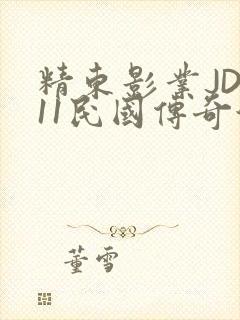 精東影業JD
11民國傳奇
董雪